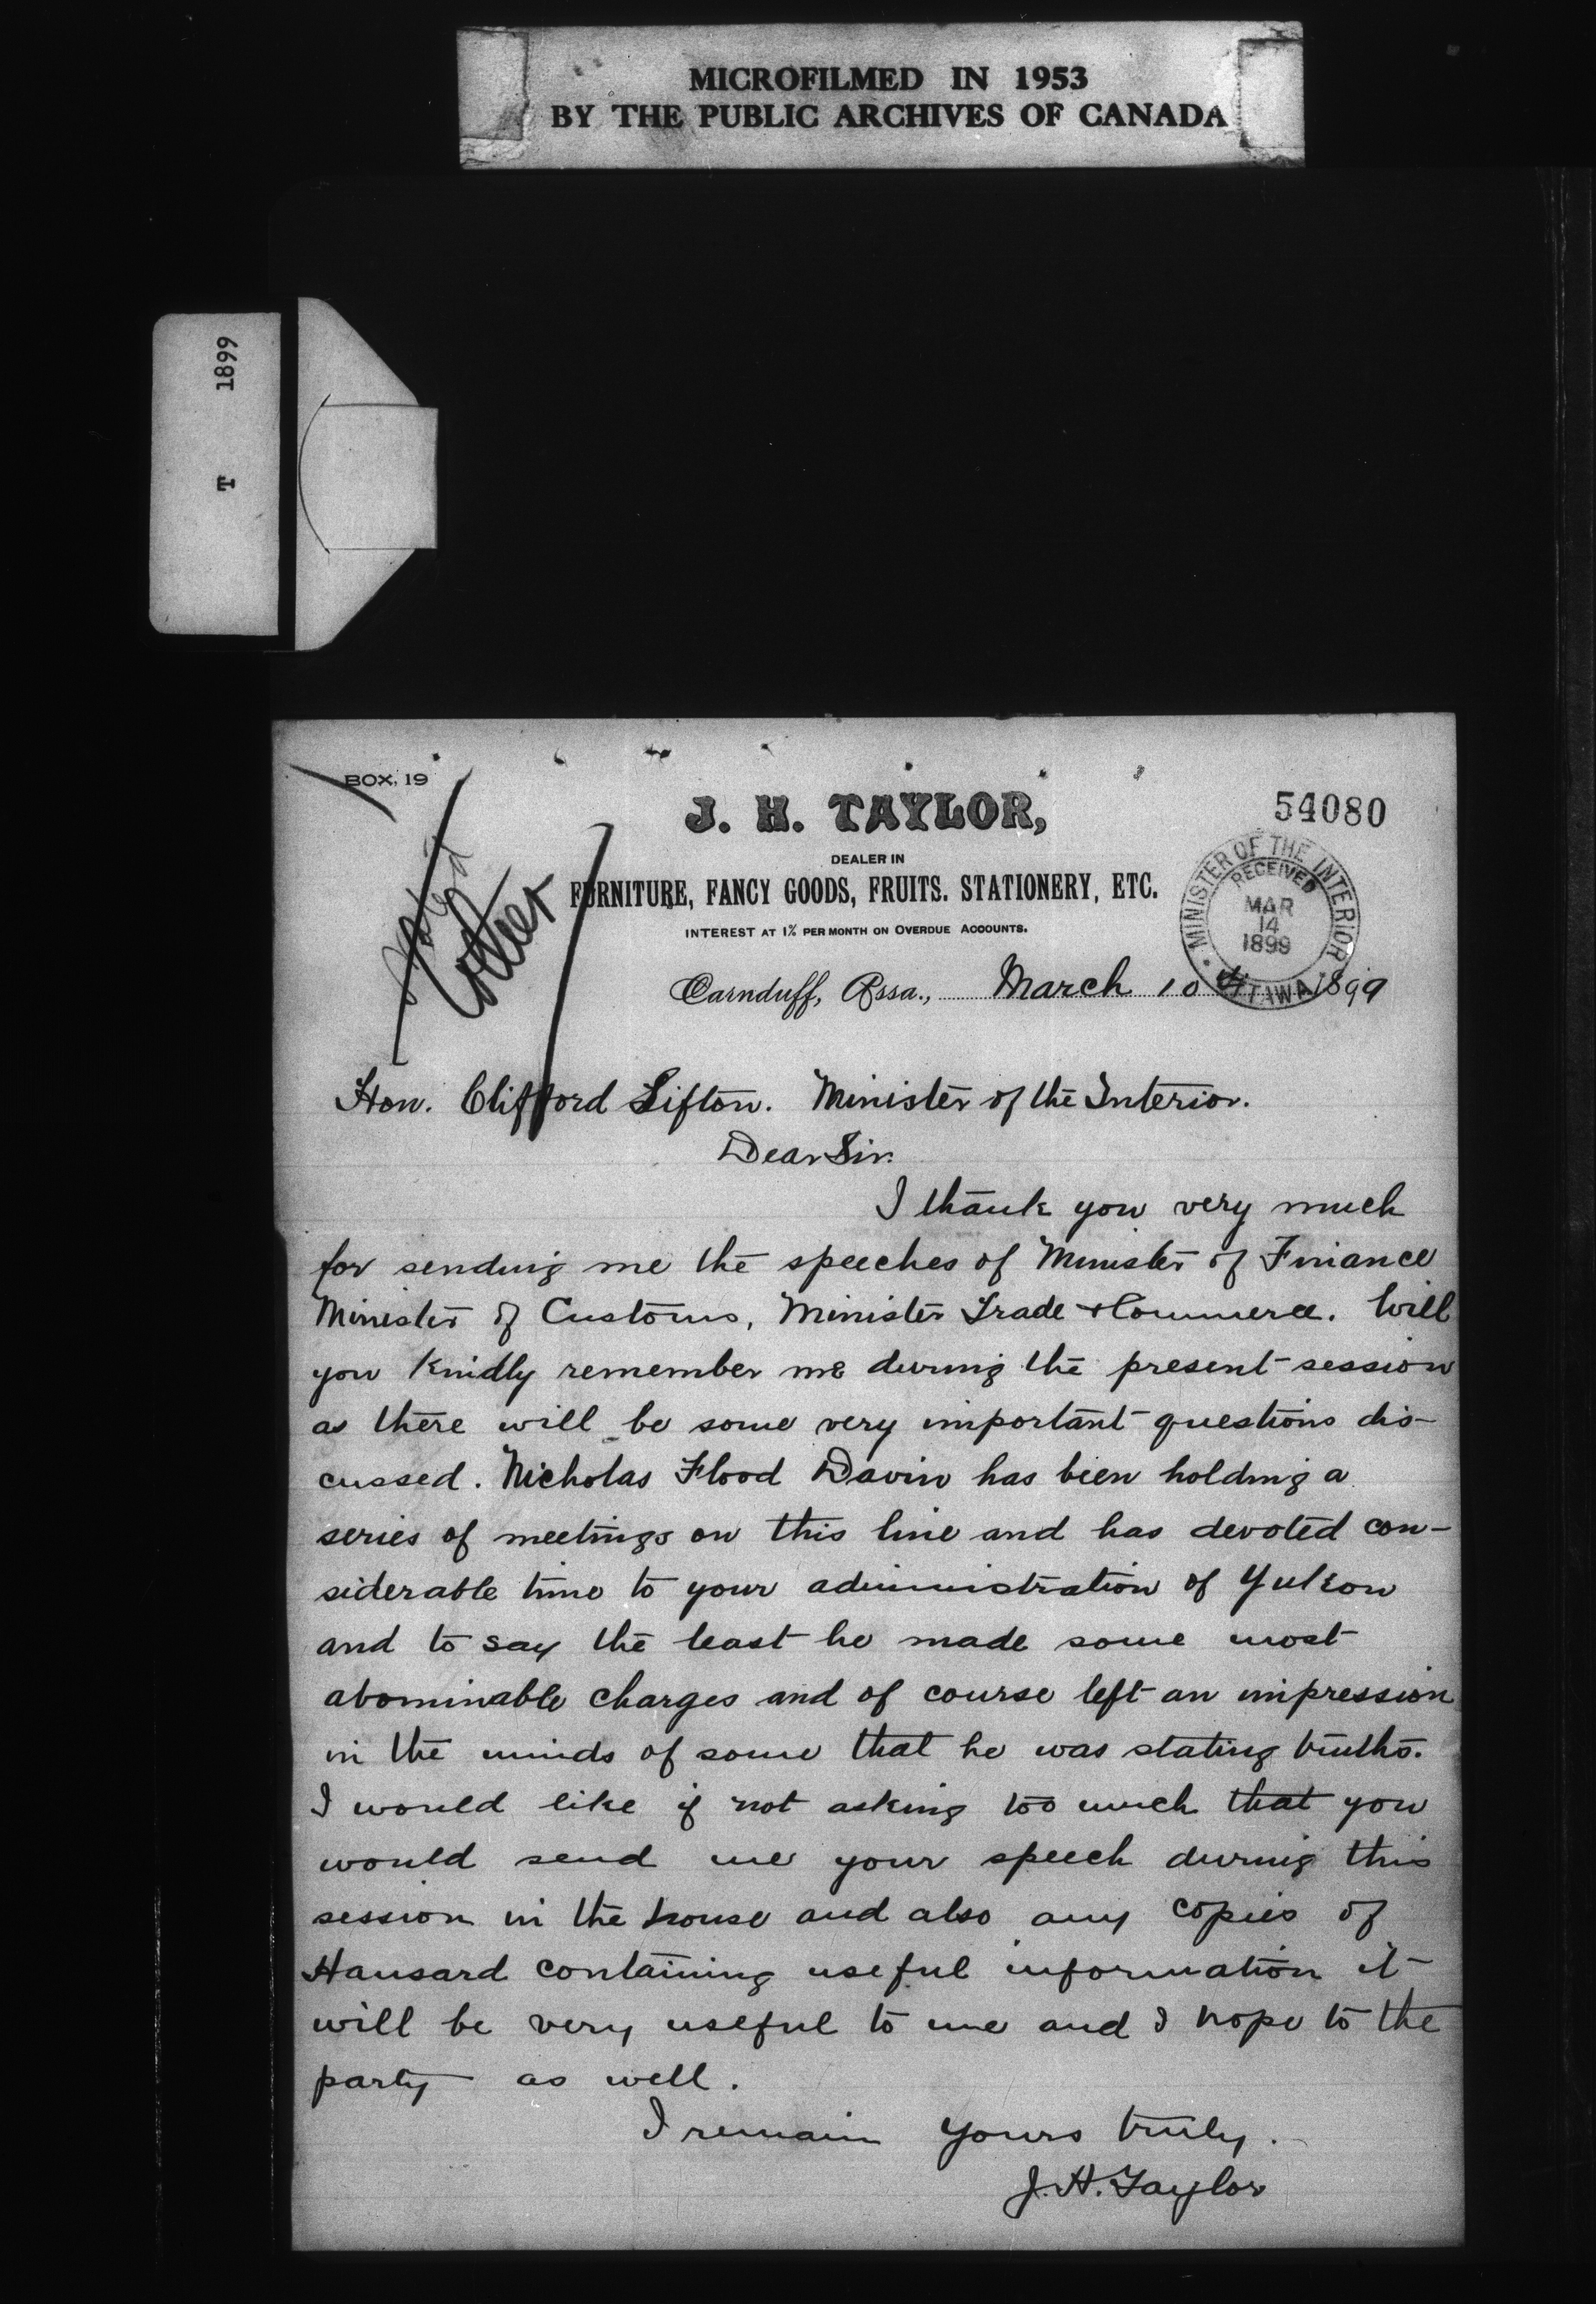 MICROFILMED IN 1953
BY THE PUBLIC ARCHIVES OF CANADA
T 1899
BOX, 19
J. H. TAYLOR,
54080
DEALER IN
FURNITURE, FANCY GOODS, FRUITS. STATIONERY, ETC.
INTEREST AT 1% PER MONTH ON OVERDUE ACCOUNTS.
MINISTER OF THE INTERIOR
RECEIVED
MAR
14
1899
OTTAWA
Carnduff, Assa., March 10 1899
Hon. Clifford Sifton. Minister of the Interior.
Dear Sir.
I thank you very much
for sending me the speeches of Minister of Finance
Minister of Customs, Minister Trade & Commerce. Will
you kindly remember me during the present session
as there will be some very important questions dis-
cussed. Nicholas Flood Davin has been holding a
series of meetings on this line and has devoted con-
siderable time to your administration of Yukon
and to say the least he made some most
abominable charges and of course left an impression
in the minds of some that he was stating truths.
I would like if not asking too much that you
would send me your speech during this
session in the house and also any copies of
Hansard containing useful information it
will be very useful to me and I hope to the
party as well.
I remain yours truly.
J. H. Taylor